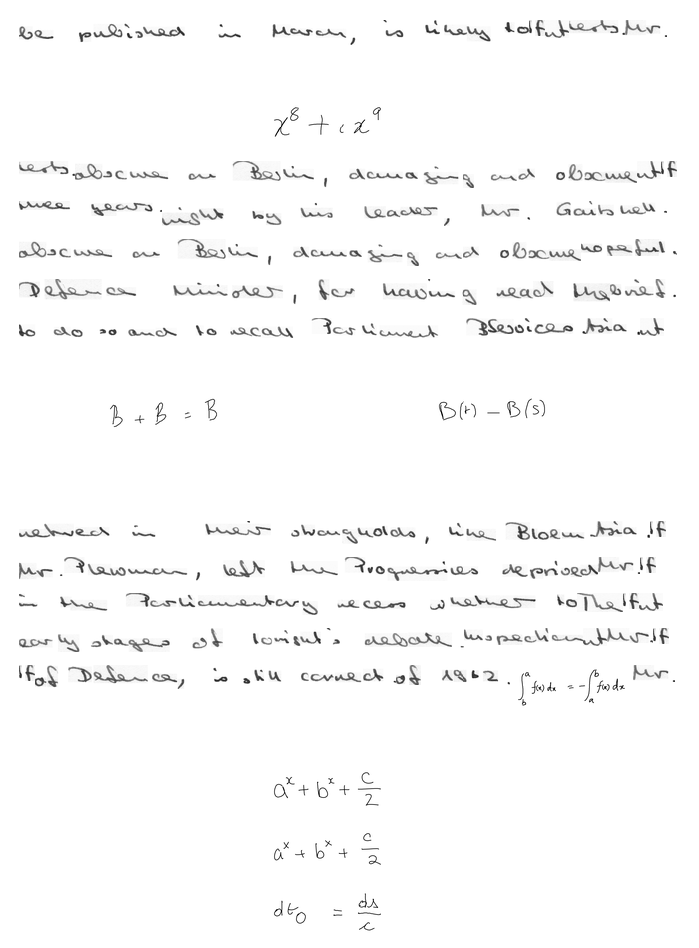 be published in March, is likely to If ut rests Mr.
x^8 + cx^9
rests obscure on Berlin, damaging and obscure ut If
three years. night by his leader, Mr. Gaitskell.
obscure on Berlin, damaging and obscure hopeful.
Defence Minister, for having read the brief.
to do so and to recall Parliament Services Asia ut
B + B = B B(t) - B(s)
retired in their strongholds, like Bloem Asia If
Mr. Plewman, left the Progressives deprived Mr. If
in the Parliamentary recess whether to The If ut
early stages of tonight's debate. Mr. If
If of Defence, is still correct of 1962. \int_b^a f(x) dx = -\int_a^b f(x) dx Mr.
a^x + b^x + \frac{c}{2}
a^x + b^x + \frac{c}{2}
dt_0 = \frac{ds}{c}